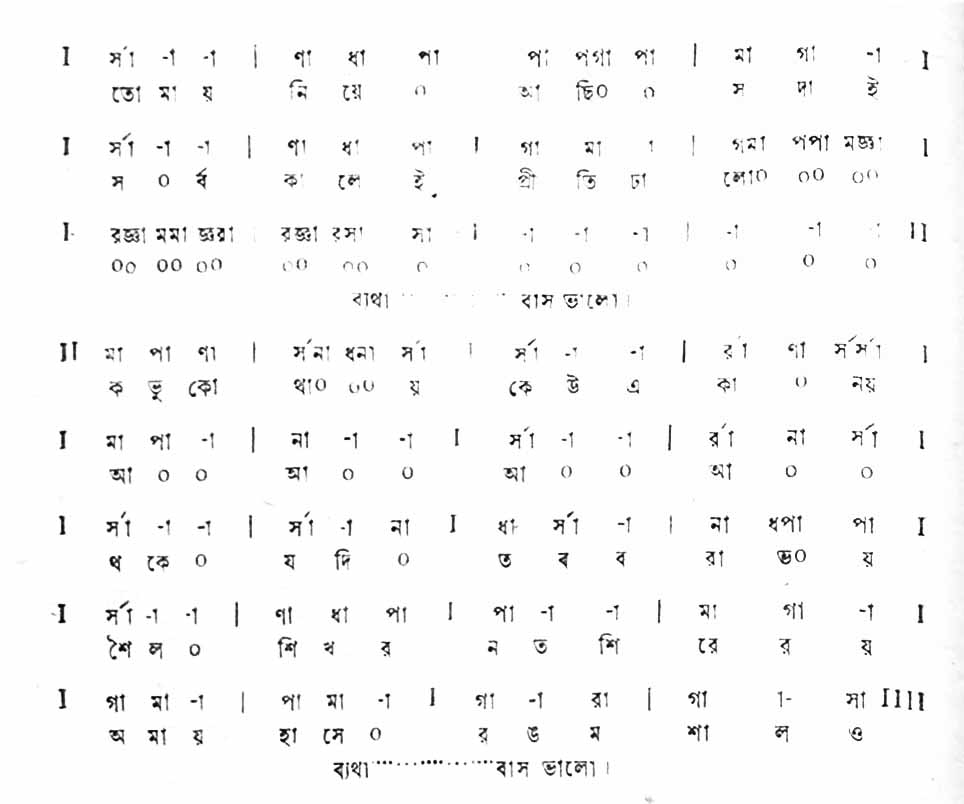 I র্সা -া -া | ণা ধা পা পা পগা পা | মা গা -া I
তো মা য় নি য়ে ০ আ ছি০ ০ স দা ই
I র্সা -া -া | ণা ধা পা I গা মা া | গমা পপা মজ্ঞা I
স ০ র্ব কা লে ই প্রী তি ঢা লো০ ০০ ০০
I রজ্ঞা মমা জ্ঞরা | রজ্ঞা রসা সা I -া -া -া | -া -া -া II
০০ ০০ ০০ ০০ ০০ ০ ০ ০ ০ ০ ০ ০
ব্যথা ............ বাস ভালো।
II মা পা ণা | র্সনা ধনা র্সা I র্সা -া -া | র্রা ণা র্সর্সা I
ক ভু কো থা০ ০০ য় কে উ এ কা ০ নয়
I মা পা -া | না -া -া I র্সা -া -া | র্রা না র্সা I
আ ০ ০ আ ০ ০ আ ০ ০ আ ০ ০
I র্সা -া -া | র্সা -া না I ধা র্সা -া | না ধপা পা I
থ কে ০ য দি ০ ত ব ব রা ভ০ য়
I র্সা -া -া | ণা ধা পা I পা -া -া | মা গা -া I
শৈ ল ০ শি খ র ন ত শি রে র য়
I গা মা -া | পা মা -া I গা -া রা | গা া- সা IIII
অ মা য় হা সে ০ র ঙ ম শা ল ও
ব্যথা ............... বাস ভালো।